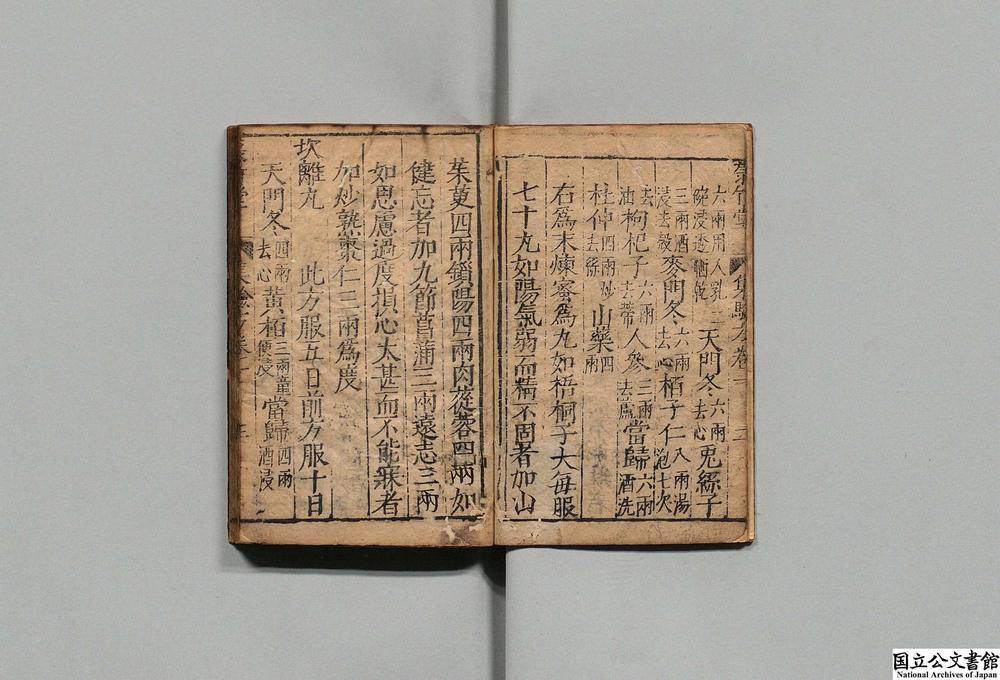 六兩用人乳二
碗浸透晒乾 天門冬 六兩去心 兎絲子
三兩酒浸去殼 麥門冬 六兩去心 栢子仁 八兩湯泡七次
去油 枸杞子 六兩去蒂 人參 三兩去蘆 當歸 六兩酒洗
杜仲 四兩炒去絲 山藥 四兩
右爲末煉蜜爲丸如梧桐子大每服
七十丸如陽氣弱而精不固者加山
茱萸四兩鎖陽四兩肉蓯蓉四兩如
健忘者加九節菖蒲三兩遠志三兩
如思慮過度損心太甚而不能寐者
加炒熟棗仁三兩爲度
坎離丸 此方服五日前方服十日
天門冬 四兩去心 黃栢 三兩童便浸 當歸 四兩酒浸
国立公文書館
National Archives of Japan